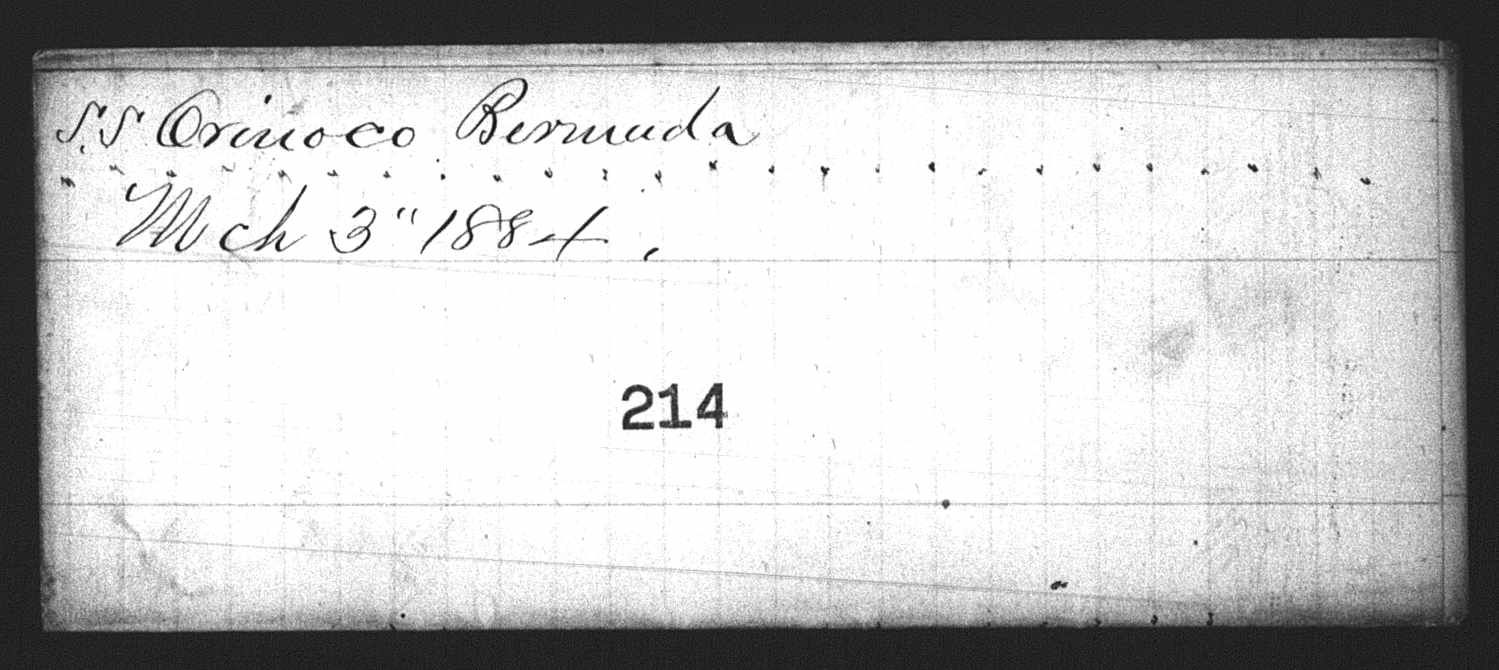 S.S Orinoco Bermuda
Mch 3" 1884.
214